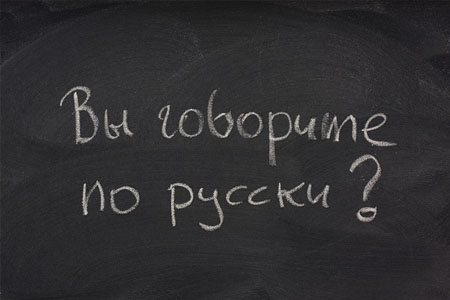 Вы говорите
по русски?